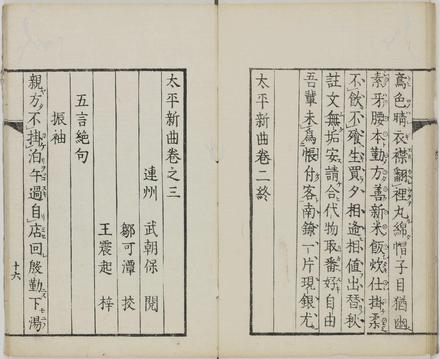 鳶色晴衣襟翻裡丸綿帽子目猶幽
素牙腰本勤方善新米飯炊仕掛柔
不飲不飧生買夕相逢相値出替秋
註文無垢安請合代物取番好自由
吾輩未為帳付客南鐐一片現銀尤
太平新曲卷二終
太平新曲卷之三
連州 武朝保 閱
鄒可潭 挍
王震起 梓
五言絕句
振袖
親方不掛泊午過自店回慇勤下湯
十六